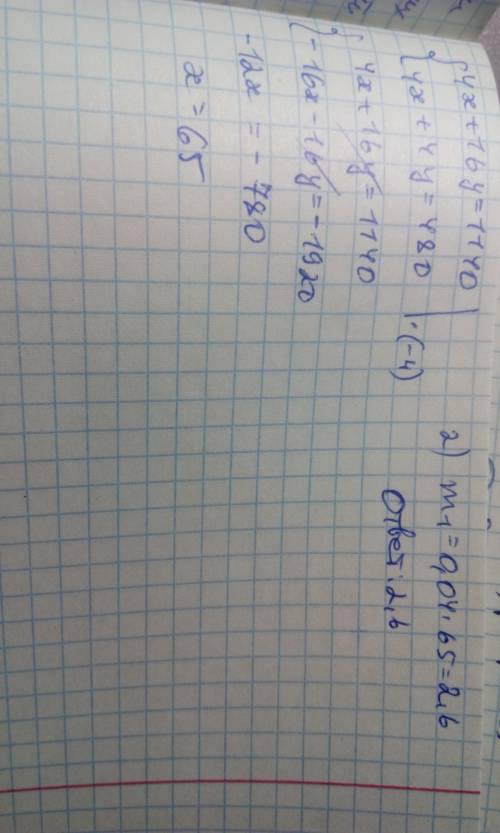 {4x+16y=1140
{4x+4y=480 | ·(-4)
{4x+16y=1140
{-16x-16y=-1920
-12x=-780
x=65
2) m₁=0,04·65=2,6
Ответ: 2,6